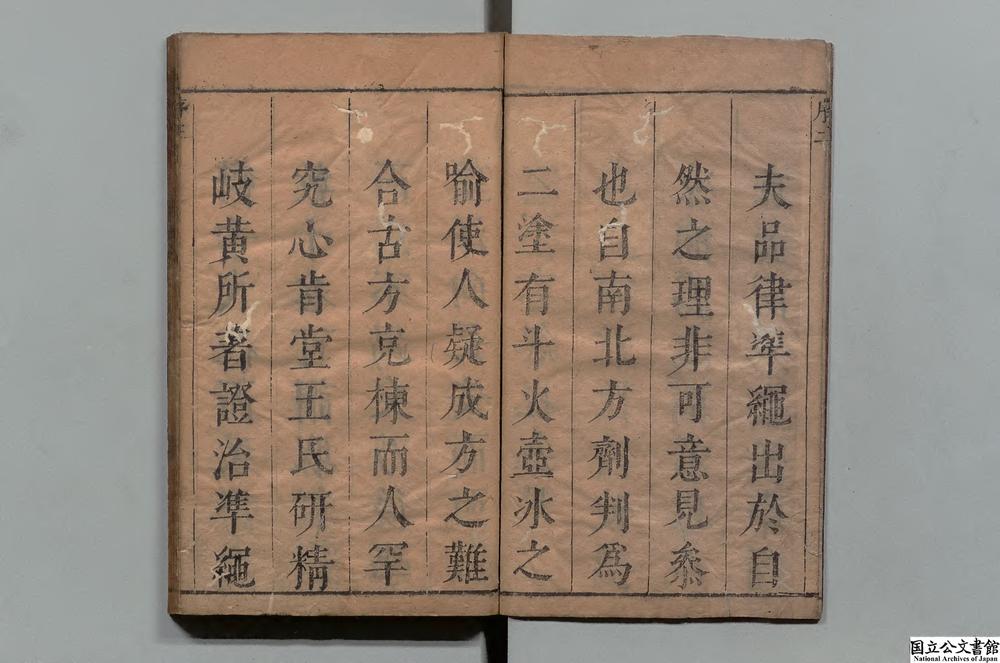 序二
夫品律準繩出於自
然之理非可意見叅
也自南北方劑判爲
二塗有斗火壺冰之
喻使人疑成方之難
合古方充棟而人罕
究心肯堂王氏研精
岐黃所著證治準繩
国立公文書館
National Archives of Japan